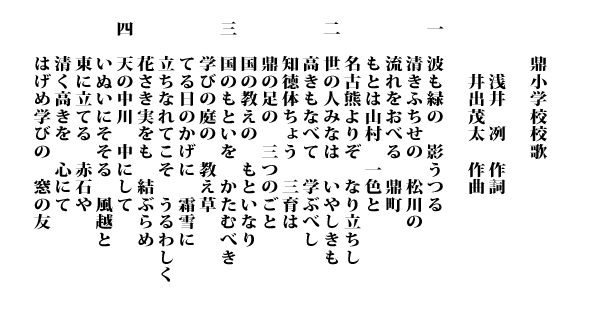 鼎小学校校歌
浅井 冽 作詞
井出茂太 作曲
一
波も緑の 影うつる
清きふちせの 松川の
流れをおべる 鼎町
もとは山村 一色と
名古熊よりぞ なり立ちし
二
世の人みなは いやしきも
高きもなべて 学ぶべし
知徳体ちょう 三育は
鼎の足の 三つのごと
国の教えの もといなり
三
国のもといを かたむべき
学びの庭の 教え草
てる日のかげに 霜雪に
立ちなれてこそ うるわしく
花さき実をも 結ぶらめ
四
天の中川 中にして
いぬいにそそる 風越と
東に立てる 赤石や
清く高きを 心にて
はげめ学びの 窓の友